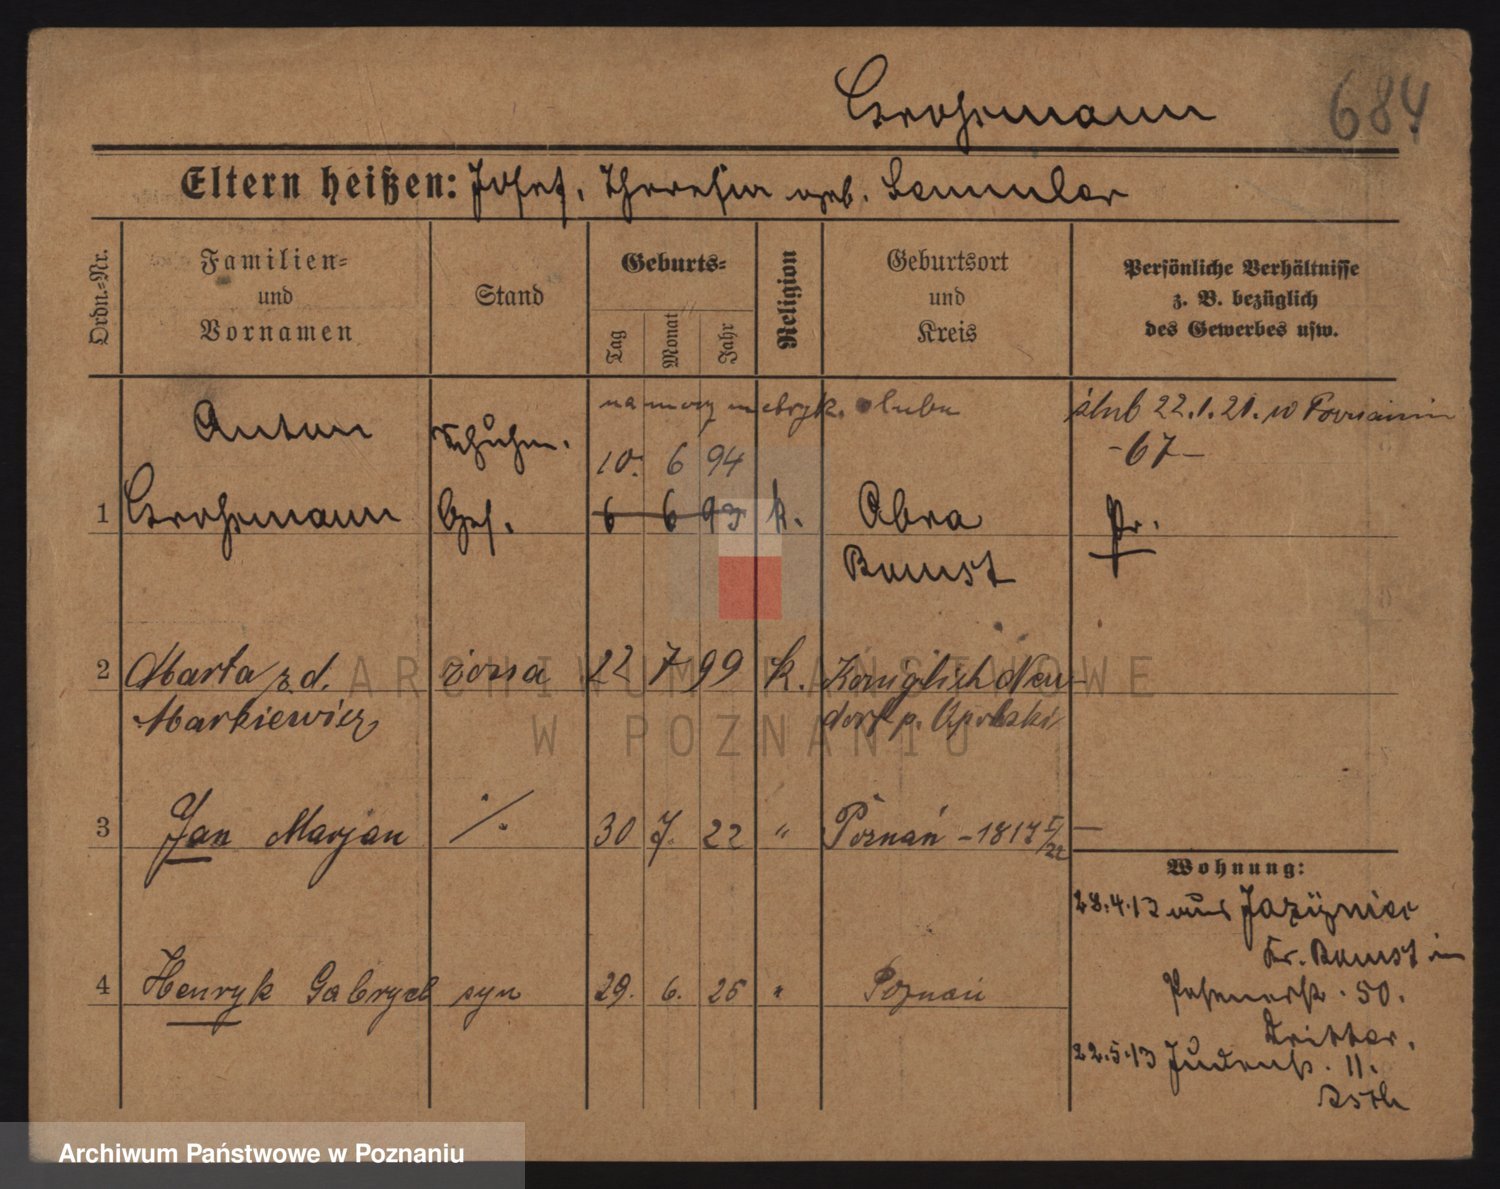 Grohsmann
684
Eltern heißen: Josef, Theresia geb. Semmler
Ordn.-Nr.
Familien-
und
Vornamen
Stand
Geburts-
Tag
Monat
Jahr
Religion
Geburtsort
und
Kreis
Persönliche Verhältnisse
z. B. bezüglich
des Gewerbes usw.
na mocy metryk. ślubu
ślub 22.1.21. w Poznaniu
-67-
Anton
Schuhm.
10. 6 94
1 Grohsmann Ges. 6 6 93 k. Obra Pr.
Bomst
2 Marta z d. żona 22 7 99 k. Königlich Neu-
Markiewicz dorf p. Opolski
3 Jan Marjan ./. 30 7. 22 " Poznań - 1817 V/22 -
Wohnung:
28.4.13 aus Jazyniec
Kr. Bomst in
4 Henryk Gabryel syn 29. 6. 25 " Poznań
Posenerstr. 50.
22.5.13 Judenstr. 11.
ARCHIWUM PAŃSTWOWE
W POZNANIU
Archiwum Państwowe w Poznaniu